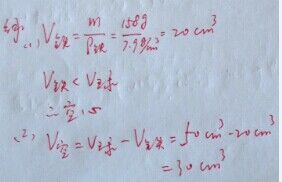 解(1) V铁 = m/ρ铁 = 158g/7.9g/cm³ = 20cm³
V铁 < V球
∴空心
(2) V空 = V球 - V铁 = 50cm³ - 20cm³
= 30cm³